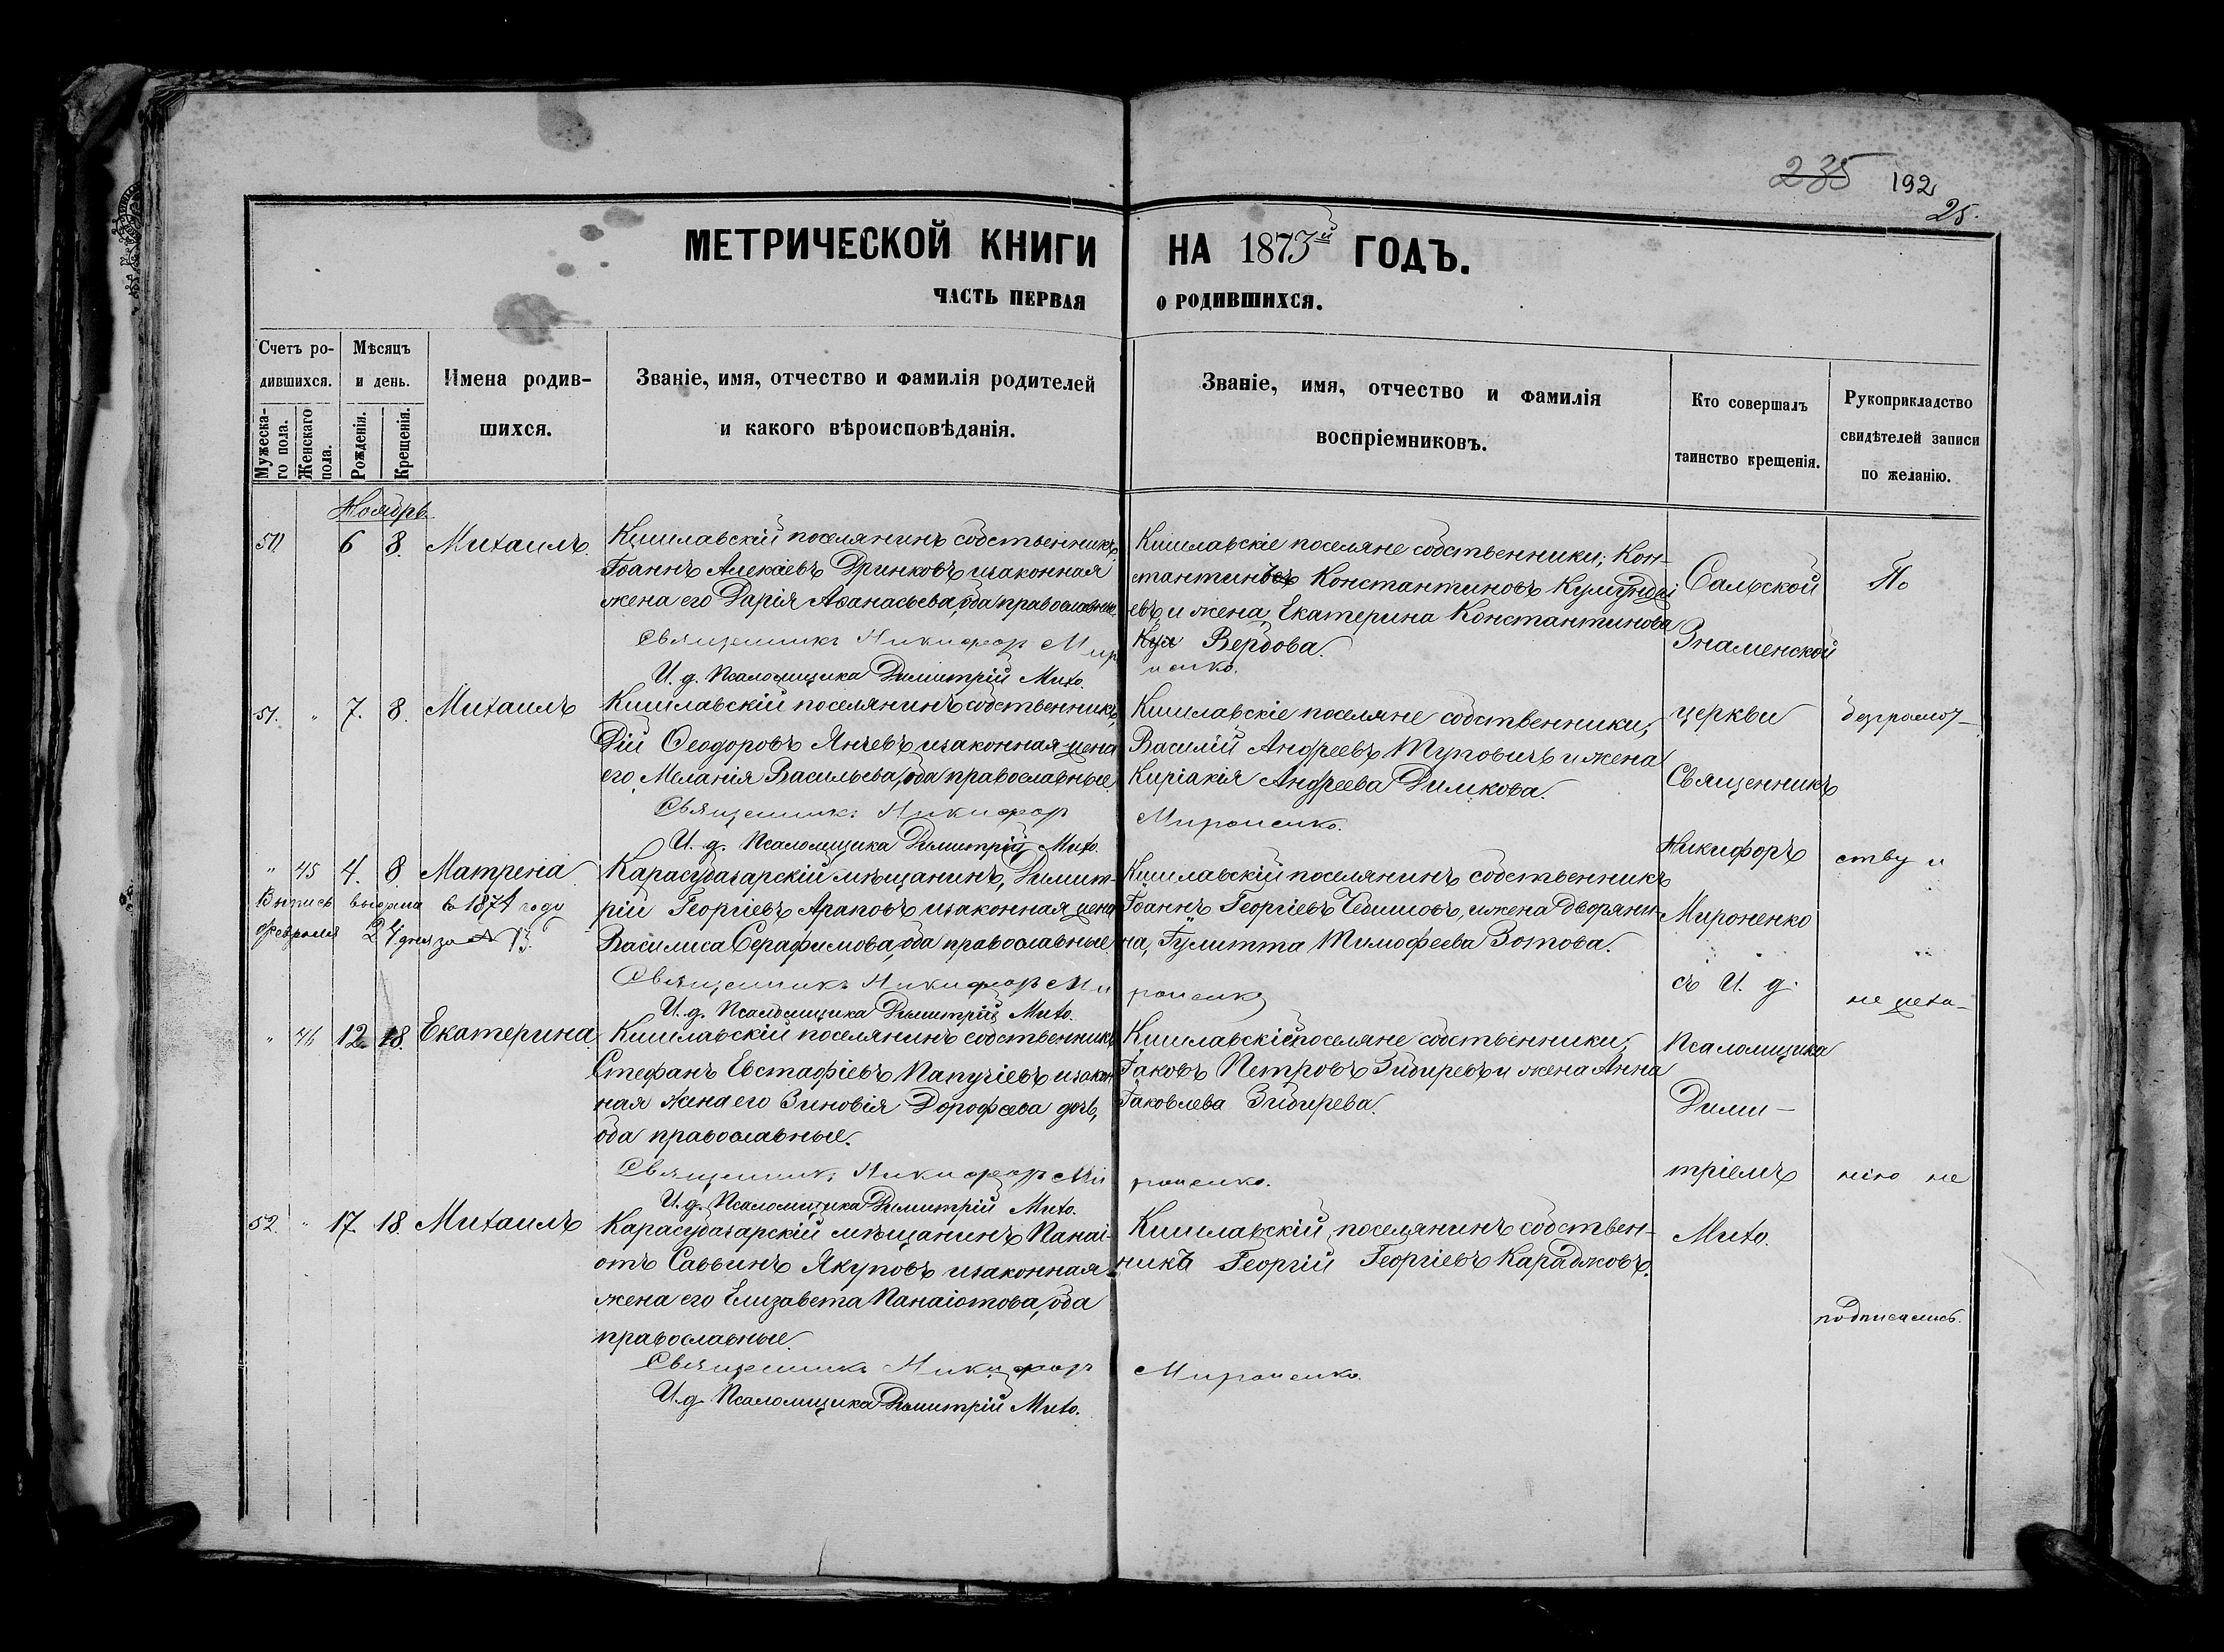 235 192
25.
МЕТРИЧЕСКОЙ КНИГИ НА 1873й ГОДЪ.
ЧАСТЬ ПЕРВАЯ О РОДИВШИХСЯ.
Счетъ родившихся.
Мужескаго пола.
Женскаго пола.
Мѣсяцъ и день.
Рожденія.
Крещенія.
Имена родившихся.
Званіе, имя, отчество и фамилія родителей
и какого вѣроисповѣданія.
Званіе, имя, отчество и фамилія
воспріемниковъ.
Кто совершалъ
таинство крещенія.
Рукоприкладство
свидѣтелей записи
по желанію.
Ноябрь.
6 8. Михаилъ.
Кишлавскій поселянинъ собственникъ,
Іоаннъ Алексіевъ Дринковъ изаконная
жена его Дарія Аѳанасьева, оба православные
Священникъ Никифор Мироненко.
И. д. Псаломщика Димитрій Михо.
Кишлавскіе поселяне собственники; Кон-
стантинъ Константиновъ
евъ и жена Екатерина Константинова
Вербова.
51. " 7. 8. Михаилъ
Кишлавскій поселянинъ собственникъ,
Ѳеодоровъ Янчевъ изаконная жена
его Меланія Васильева, оба православные
Священникъ Никифор Мироненко.
И. д. Псаломщика Димитрій Михо.
Кишлавскіе поселяне собственники;
Василій Андреевъ Туповичъ и жена
Киріакія Андреева Димкова.
" 45 4. 8. Матрена
Выпись выдана въ 1874 году
февраля 24 дня за № 13.
Карасубазарскій мѣщанинъ, Димит-
рій Георгіевъ Араповъ изаконная жена
Василиса Серафимова, оба православные
Священникъ Никифор Мироненко
И. д. Псаломщика Димитрій Михо.
Кишлавскій поселянинъ собственникъ
Іоаннъ Георгіевъ Чебишовъ, и жена дворяни-
на, Іулитта Тимофеева Зотова.
" 46 12. 18. Екатерина
Кишлавскій поселянинъ собственникъ
Стефанъ Евстафіевъ Папучіевъ изакон
ная жена его Зиновія Дорофеева дочь,
оба православные.
Священникъ Никифор Мироненко.
И. д. Псаломщика Димитрій Михо.
Кишлавскіе поселяне собственники;
Іаковъ Петровъ Зибиревъ и жена Анна
Іаковлева Зибирева.
52. " 17. 18. Михаилъ
Карасубазарскій мѣщанинъ Панаі-
отъ Саввинъ Якуповъ изаконная
жена его Елизавета Панаіотова, оба
православные.
Священникъ Никифор Мироненко.
И. д. Псаломщика Димитрій Михо.
Кишлавскій поселянинъ собствен-
никъ Георгій Георгіевъ Караджовъ.
Сальской
Знаменской
церкви
Священникъ
Никифоръ
Мироненко
съ И. д.
Псаломщика
Дими-
тріемъ
Михо.
По
безграмот-
ству и
нію не
подписались.